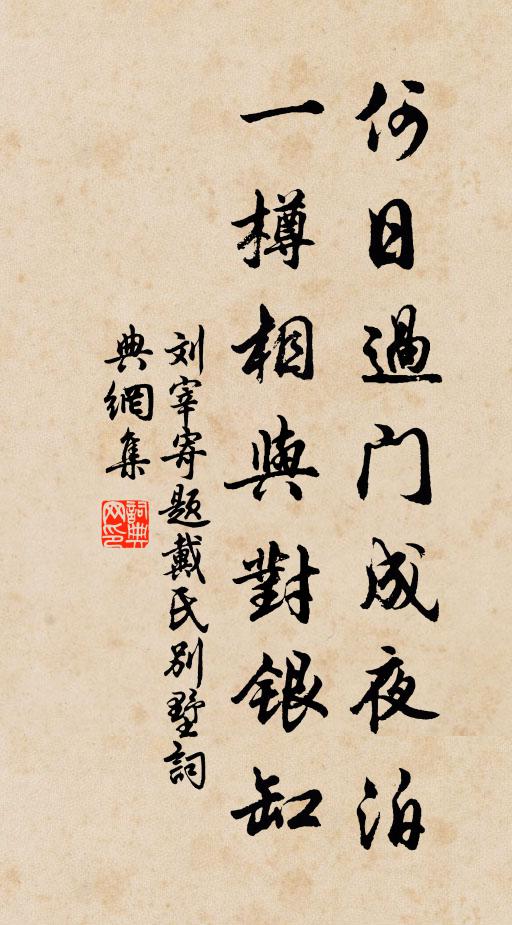 何日過门成夜泊
一樽相與對銀缸
刘宰寄题戴氏别墅詞
典網集
詞典网印